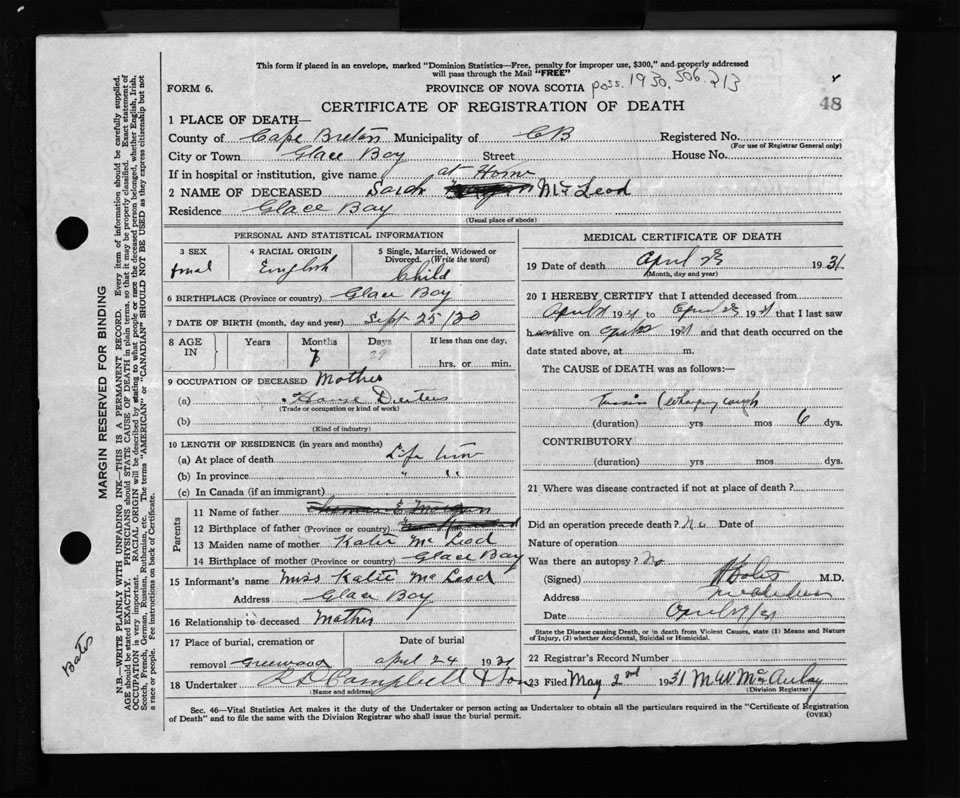 This form if placed in an envelope, marked "Dominion Statistics—Free, penalty for improper use, $300," and properly addressed
will pass through the Mail "FREE"
FORM 6.
PROVINCE OF NOVA SCOTIA
poss. 1930. 506. 213
CERTIFICATE OF REGISTRATION OF DEATH
48
1 PLACE OF DEATH—
County of Cape Breton Municipality of CB Registered No.
(For use of Registrar General only)
City or Town Glace Bay Street House No.
If in hospital or institution, give name at Home
2 NAME OF DECEASED Sarah McLeod
Residence Glace Bay
(Usual place of abode)
PERSONAL AND STATISTICAL INFORMATION
3 SEX
4 RACIAL ORIGIN
English
5 Single, Married, Widowed or
Divorced. (Write the word)
Child
6 BIRTHPLACE (Province or country) Glace Bay
7 DATE OF BIRTH (month, day and year) Sept 25/30
8 AGE
IN
Years
Months
Days
29
If less than one day,
hrs. or min.
9 OCCUPATION OF DECEASED Mother
(a) House Duties
(Trade or occupation or kind of work)
(b)
(Kind of industry)
10 LENGTH OF RESIDENCE (in years and months)
(a) At place of death Life time
(b) In province "
(c) In Canada (if an immigrant)
Parents
11 Name of father Thomas E Morgan
12 Birthplace of father (Province or country)
13 Maiden name of mother Katie McLeod
14 Birthplace of mother (Province or country) Glace Bay
15 Informant's name Miss Katie McLeod
Address Glace Bay
16 Relationship to deceased Mother
17 Place of burial, cremation or
removal Greenwood
Date of burial
April 24 1931
18 Undertaker Campbell & Son
(Name and address)
MEDICAL CERTIFICATE OF DEATH
19 Date of death April 23 1931
(Month, day and year)
20 I HEREBY CERTIFY that I attended deceased from
April 1931 to April 23 1931 that I last saw
h alive on 1931 and that death occurred on
date stated above, at m.
The CAUSE of DEATH was as follows:—
Tussis (whooping cough
(duration) yrs mos 6 dys.
CONTRIBUTORY
(duration) yrs. mos. dys.
21 Where was disease contracted if not at place of death?
Did an operation precede death? No Date of
Nature of operation
Was there an autopsy? No
(Signed) M.D.
Address
Date
State the Disease causing Death, or in death from Violent Causes, state (1) Means and Nature
of Injury, (2) whether Accidental, Suicidal or Homicidal.
22 Registrar's Record Number
23 Filed May 2nd 1931 McAulay
(Division Registrar)
Sec. 46—Vital Statistics Act makes it the duty of the Undertaker or person acting as Undertaker to obtain all the particulars required in the "Certificate of Registration
of Death" and to file the same with the Division Registrar who shall issue the burial permit.
(OVER)
MARGIN RESERVED FOR BINDING
N.B.—WRITE PLAINLY WITH UNFADING INK—THIS IS A PERMANENT RECORD. Every item of information should be carefully supplied.
AGE should be stated EXACTLY. PHYSICIANS should STATE CAUSE OF DEATH in plain terms, so that it may be properly classified. Exact statement of
OCCUPATION is very important. RACIAL ORIGIN will be described by stating to what people or race the deceased person belonged, whether English, Irish,
Scotch, French, German, Russian, Ruthenian, etc. The terms "AMERICAN" or "CANADIAN" SHOULD NOT BE USED as they express citizenship but not
a race or people. Fee instructions on back of Certificate.
Bates